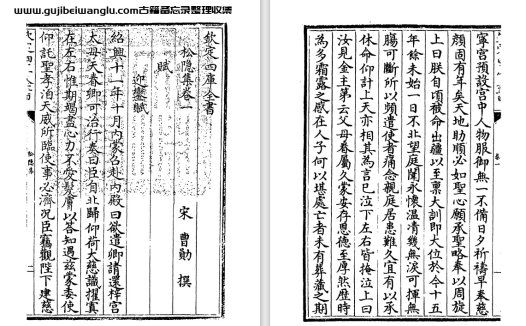 www.gujibeiwanglu.com古籍备忘录整理收集
欽定四庫全書
松隱集卷一
宋 曹勛 撰
賦
迎鑾賦
紹興十一年十月内蒙召赴内殿曰欲遣卿請還梓宮
太母天眷卿可治行奏曰臣自北歸仰荷大慈識擢寘
在左右惟期竭盡心力不愛髮膚以答知遇兹蒙委使
仰託聖孝洎天威所臨使事必濟况臣竊觀陛下建慈
松隱集
寧宮預設宮中人物服御無一不備日夕祈禱早奉慈
顔固有年矣天地助順必如聖心願承聖略奉以周旋
上曰朕自頃被命出疆以至稟大訓即大位於今十五
年餘未始一日不北望庭闈永懷溫凊幾無淚可揮無
腸可斷所以頻遣使者痛念親庭居患難久宜有以承
休命仰計上天亦相其為言已泣下左右皆掩泣上曰
汝見金主第云父母眷屬久蒙安存恩德至厚然歷時
為多霜露之感在人子何以堪處亡者未有葬藏之期